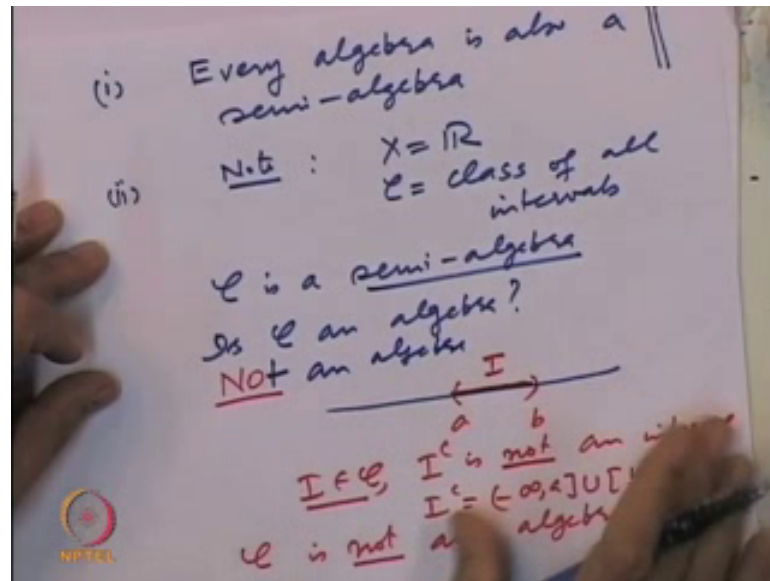 (i) Every algebra is also a
semi-algebra
(ii) Note : X = ℝ
𝒞 = class of all
intervals
𝒞 is a semi-algebra
Is 𝒞 an algebra?
NOt an algebra
I
a b
I ∈ 𝒞, I^c is not an
I^c = (-∞, a] ∪ [
𝒞 is not an algebra
NPTEL